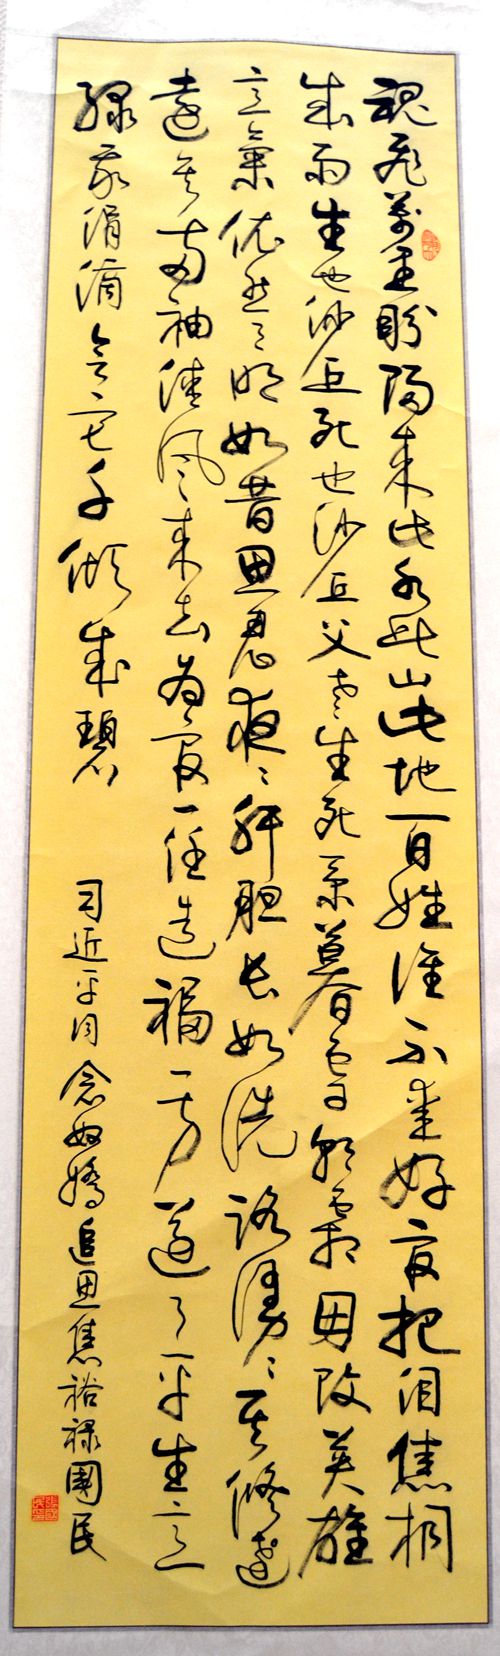 魂飛萬里盼歸来此水此山此地百姓谁不爱好官把泪焦桐
成雨生也沙丘死也沙丘父老生死系暮雪朝霜毋改英雄
意氣依然月明如昔思君夜〻肝胆长如洗路漫〻其修遠
矣両袖清风来去为官一任造福一方遂了平生意
绿我涓滴会它千顷澄碧
习近平词念奴嬌追思焦裕禄國民